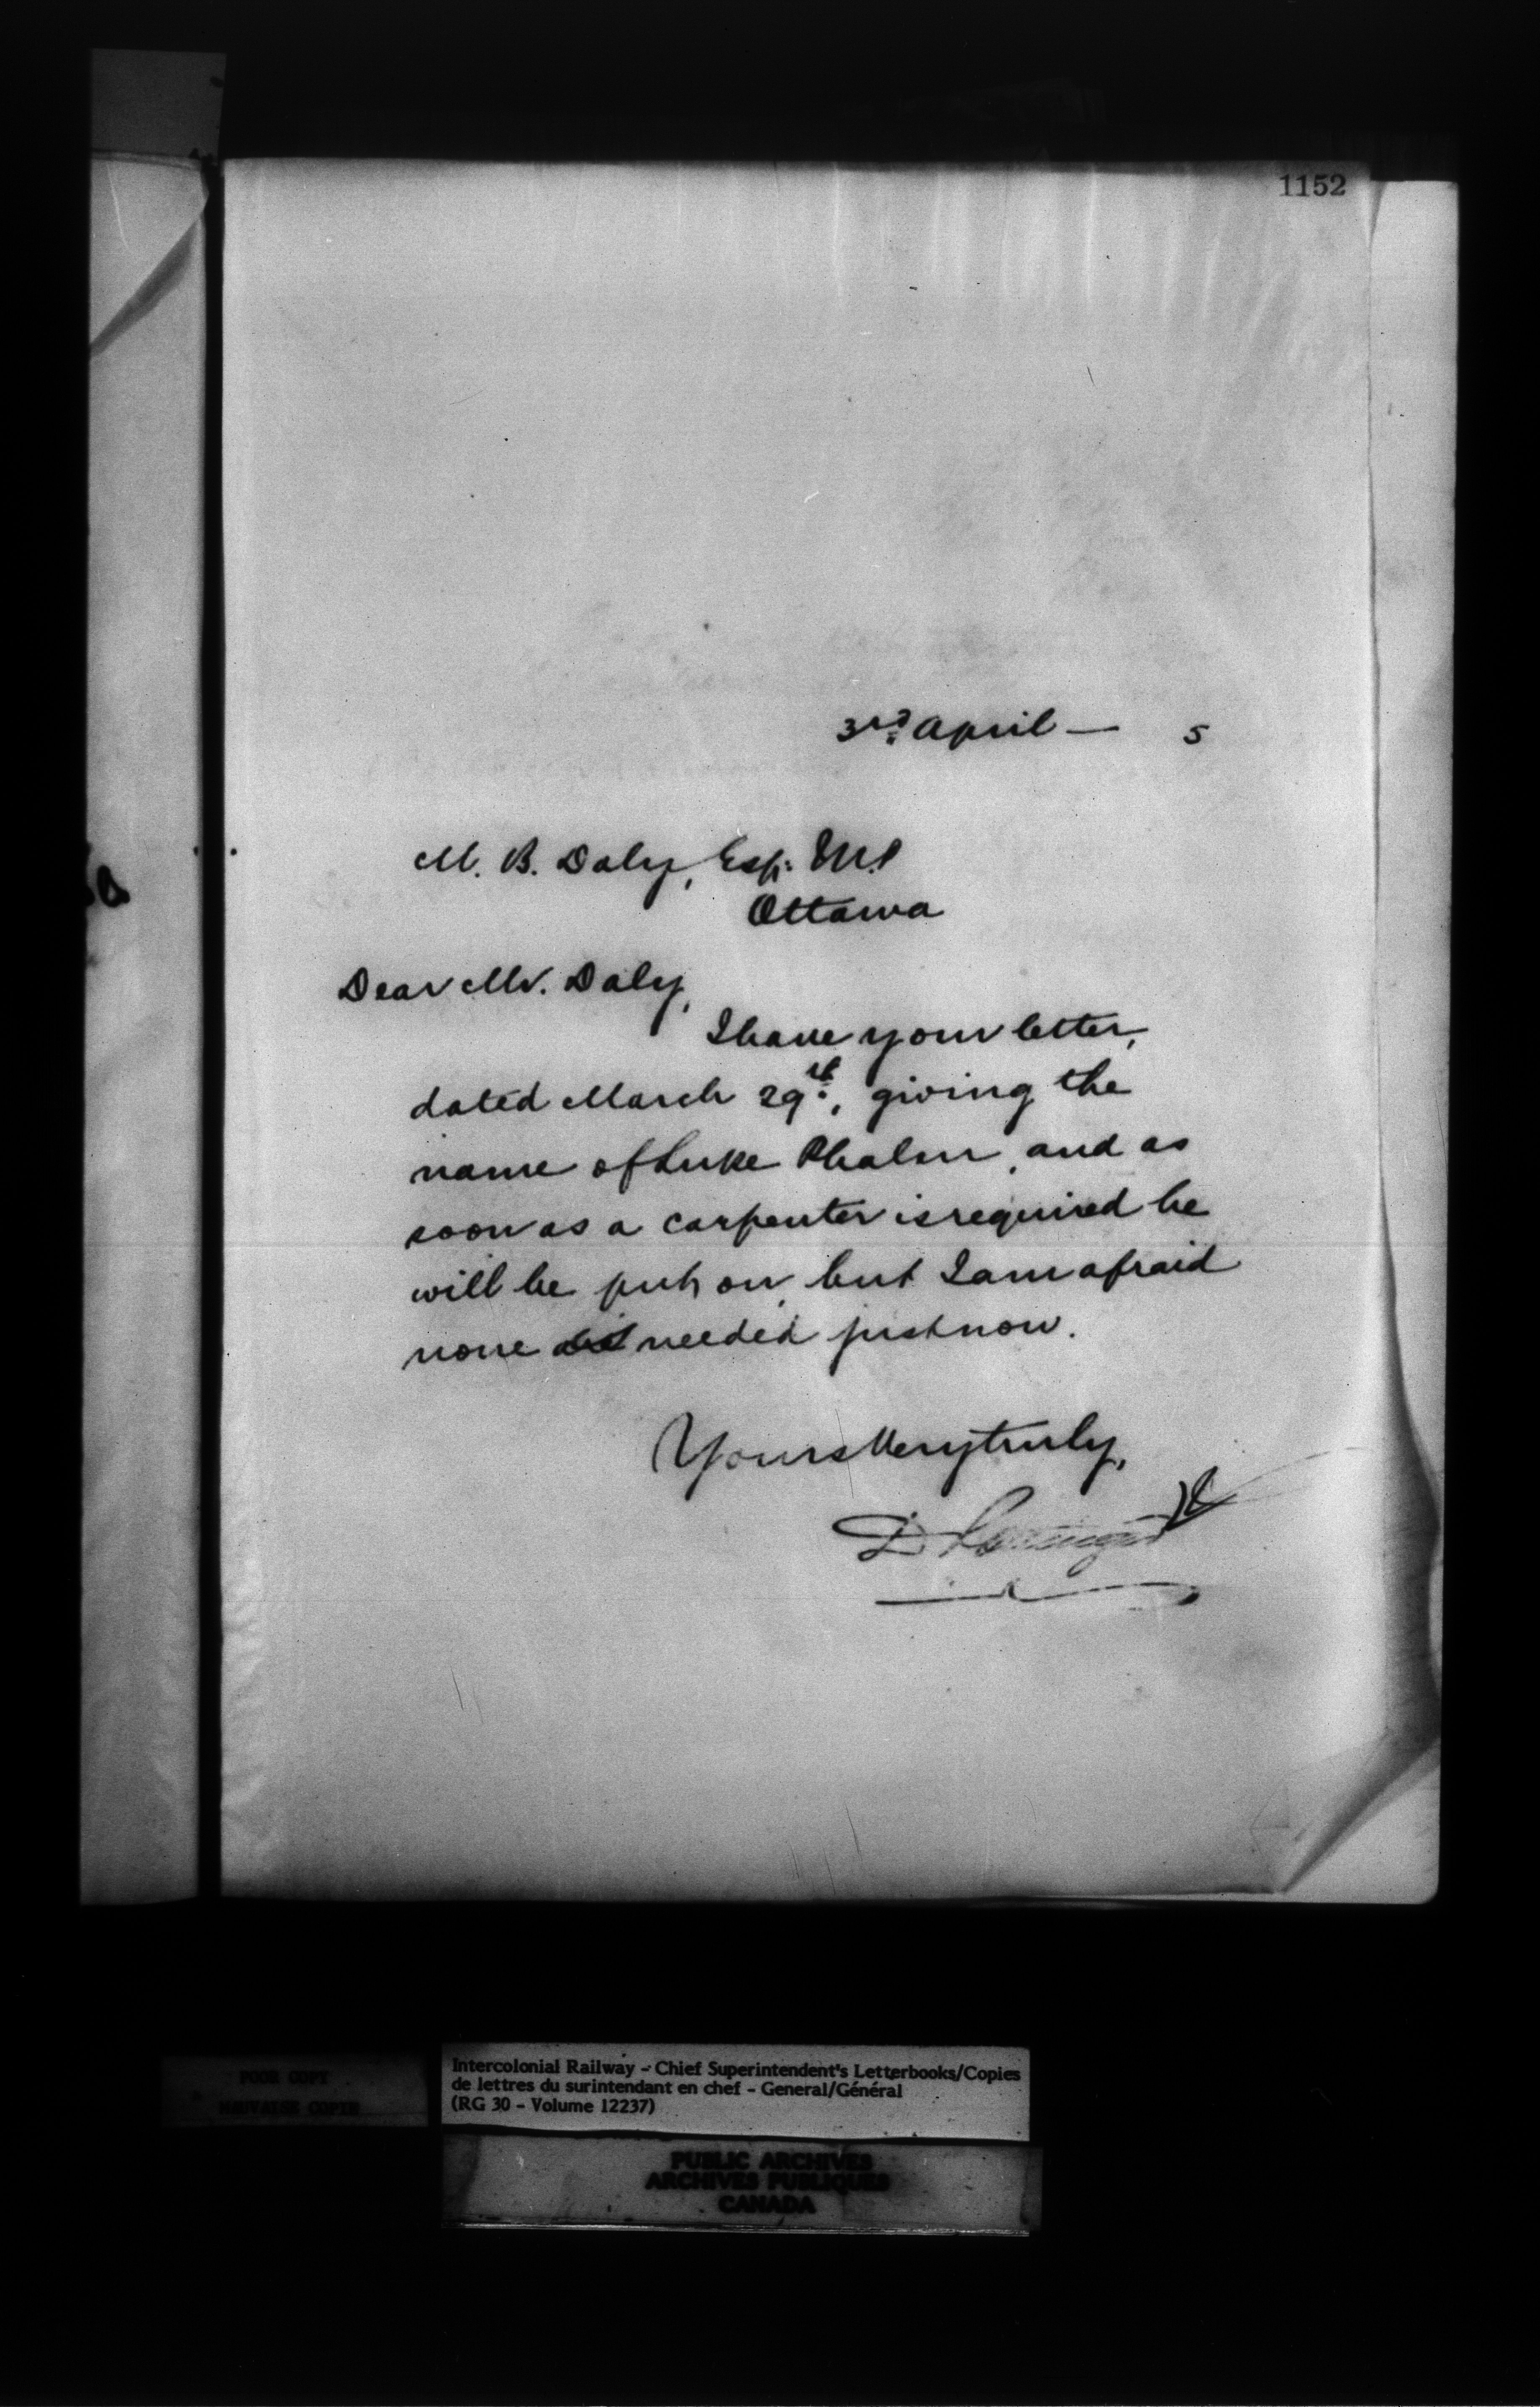 1152
3rd April — 5
M. B. Daly, Esq: M.P
Ottawa
Dear Mr. Daly,
I have your letter,
dated March 29th, giving the
name of Luke Phalen, and as
soon as a carpenter is required he
will be put on, but I am afraid
none needed just now.
Yours Very truly,
D Pottinger
POOR COPY
MAUVAISE COPIE
Intercolonial Railway - Chief Superintendent's Letterbooks/Copies
de lettres du surintendant en chef - General/Général
(RG 30 - Volume 12237)
PUBLIC ARCHIVES
ARCHIVES PUBLIQUES
CANADA